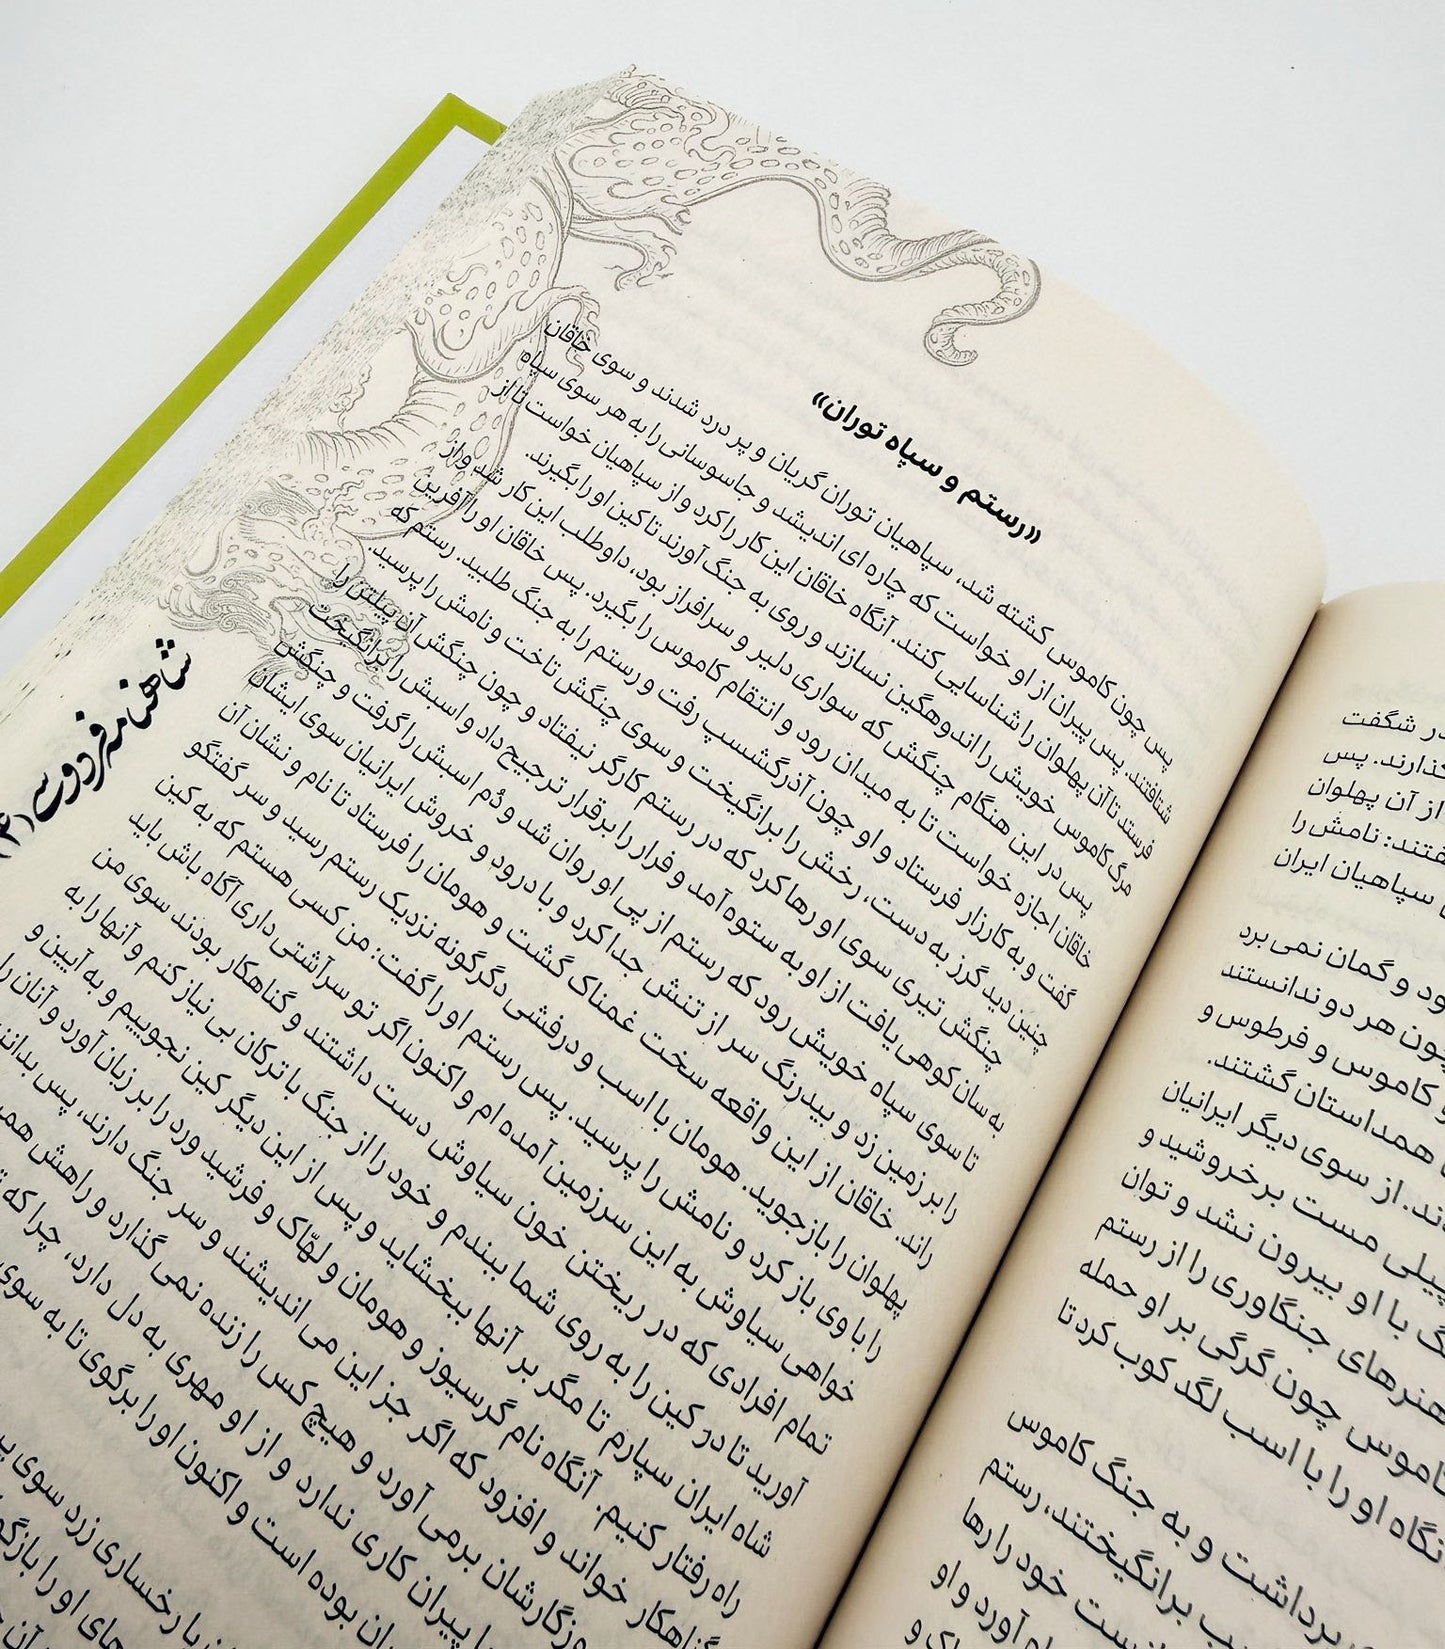 «رستم و سپاه توران»
پس چون کاموس کشته شد، سپاهیان توران گریان و پر درد شدند و سوی خاقان
شتافتند. پس پیران از او خواست که چاره ای اندیشد و جاسوسانی را به هر سوی سپاه
فرستد تا آن پهلوان را شناسایی کنند. آنگاه خاقان این کار را کرد و از سپاهیان خواست تا از
مرگ کاموس خویش را اندوهگین نسازند و روی به جنگ آورند تا کین او را بگیرند.
پس در این هنگام چنگش که سواری دلیر و سرافراز بود، داوطلب این کار شد و از
خاقان اجازه خواست تا به میدان رود و انتقام کاموس را بگیرد. پس خاقان او را آفرین
گفت و به کارزار فرستاد و او چون آذرگشسپ رفت و رستم را به جنگ طلبید. رستم که
چنین دید گرز به دست، رخش را برانگیخت و سوی چنگش تاخت و نامش را پرسید.
چنگش تیری سوی او رها کرد که در رستم کارگر نیفتاد و چون چنگش آن پیلتن را
به سان کوهی یافت از او به ستوه آمد و فرار را برقرار ترجیح داد و اسبش را برانگیخت
تا سوی سپاه خویش رود که رستم از پی او روان شد و دُم اسبش را گرفت و چنگش
را بر زمین زد و بیدرنگ سر از تنش جدا کرد و با درود و خروش ایرانیان سوی ایشان
راند. خاقان از این واقعه سخت غمناک گشت و هومان را فرستاد تا نام و نشان آن
پهلوان را بازجوید. هومان با اسب و درفشی دگرگونه نزدیک رستم رسید و سر گفتگو
را با وی باز کرد و نامش را پرسید. پس رستم او را گفت: من کسی هستم که به کین
خواهی سیاوش به این سرزمین آمده ام و اکنون اگر تو سر آشتی داری آگاه باش باید
تمام افرادی که در ریختن خون سیاوش دست داشتند و گناهکار بودند سوی من
آورید تا در کین را به روی شما ببندم و خود را از جنگ با ترکان بی نیاز کنم و آنها را به
شاه ایران سپارم تا مگر بر آنها ببخشاید و پس از این دیگر کین نجوییم و به آیین و
راه رفتار کنیم. آنگاه نام گرسیوز و هومان و لهّاک و فرشید ورد را بر زبان آورد و آنان را
گناهکار خواند و افزود که اگر جز این می اندیشند و سر جنگ دارند، پس
برمی آورد و هیچ کس را زنده نمی گذارد و راهش
پیران کاری ندارد و از او مهری به دل دارد، چرا که
بوده است و اکنون او را برگوی تا به سوی
با رخساری زرد سوی
او را
شاهنامه فردوسی (۴)
در شگفت
گذارند. پس
از آن پهلوان
نامش را
سپاهیان ایران
و گمان نمی برد
چون هر دو ندانستند
و کاموس و فرطوس و
همداستان گشتند.
از سوی دیگر ایرانیان
پیلی مست برخروشید و
با او بیرون نشد و توان
هنرهای جنگاوری را از رستم
کاموس چون گرگی بر او حمله
آنگاه او را با اسب لگد کوب کرد تا
برداشت و به جنگ کاموس
برانگیختند، رستم
خود را رها
آورد و او